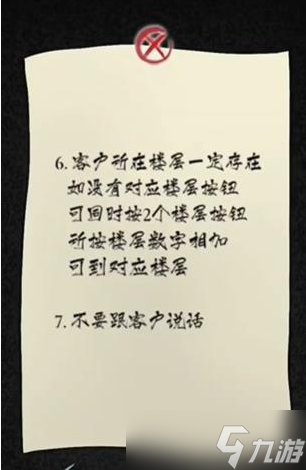 6.客户所在楼层一定存在
如没有对应楼层按钮
可同时按2个楼层按钮
所按楼层数字相加
可到对应楼层
7.不要跟客户说话
九游